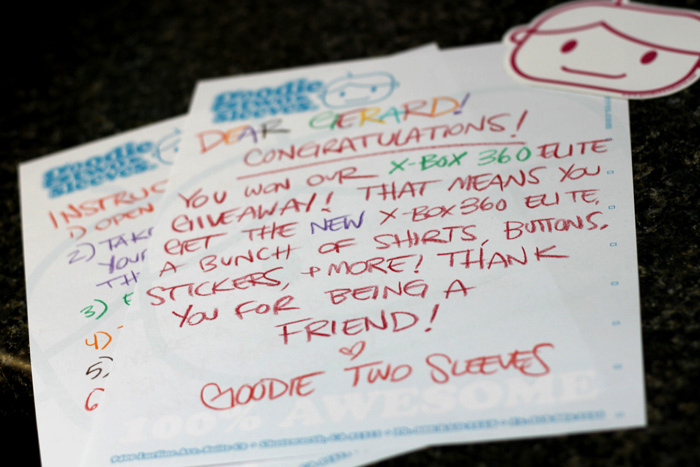 Goodie
Sleeves
DEAR GERARD!
CONGRATULATIONS!
YOU WON OUR X-BOX 360 ELITE
GIVEAWAY! THAT MEANS YOU
GET THE NEW X-BOX 360 ELITE,
A BUNCH OF SHIRTS, BUTTONS,
STICKERS, + MORE! THANK
YOU FOR BEING A
FRIEND!
GOODIE TWO SLEEVES
100% AWESOME
Goodie
Sleeves
INSTRUC
1) OPEN
2) TAK
YOUR
TH
3)
4)
5)
6